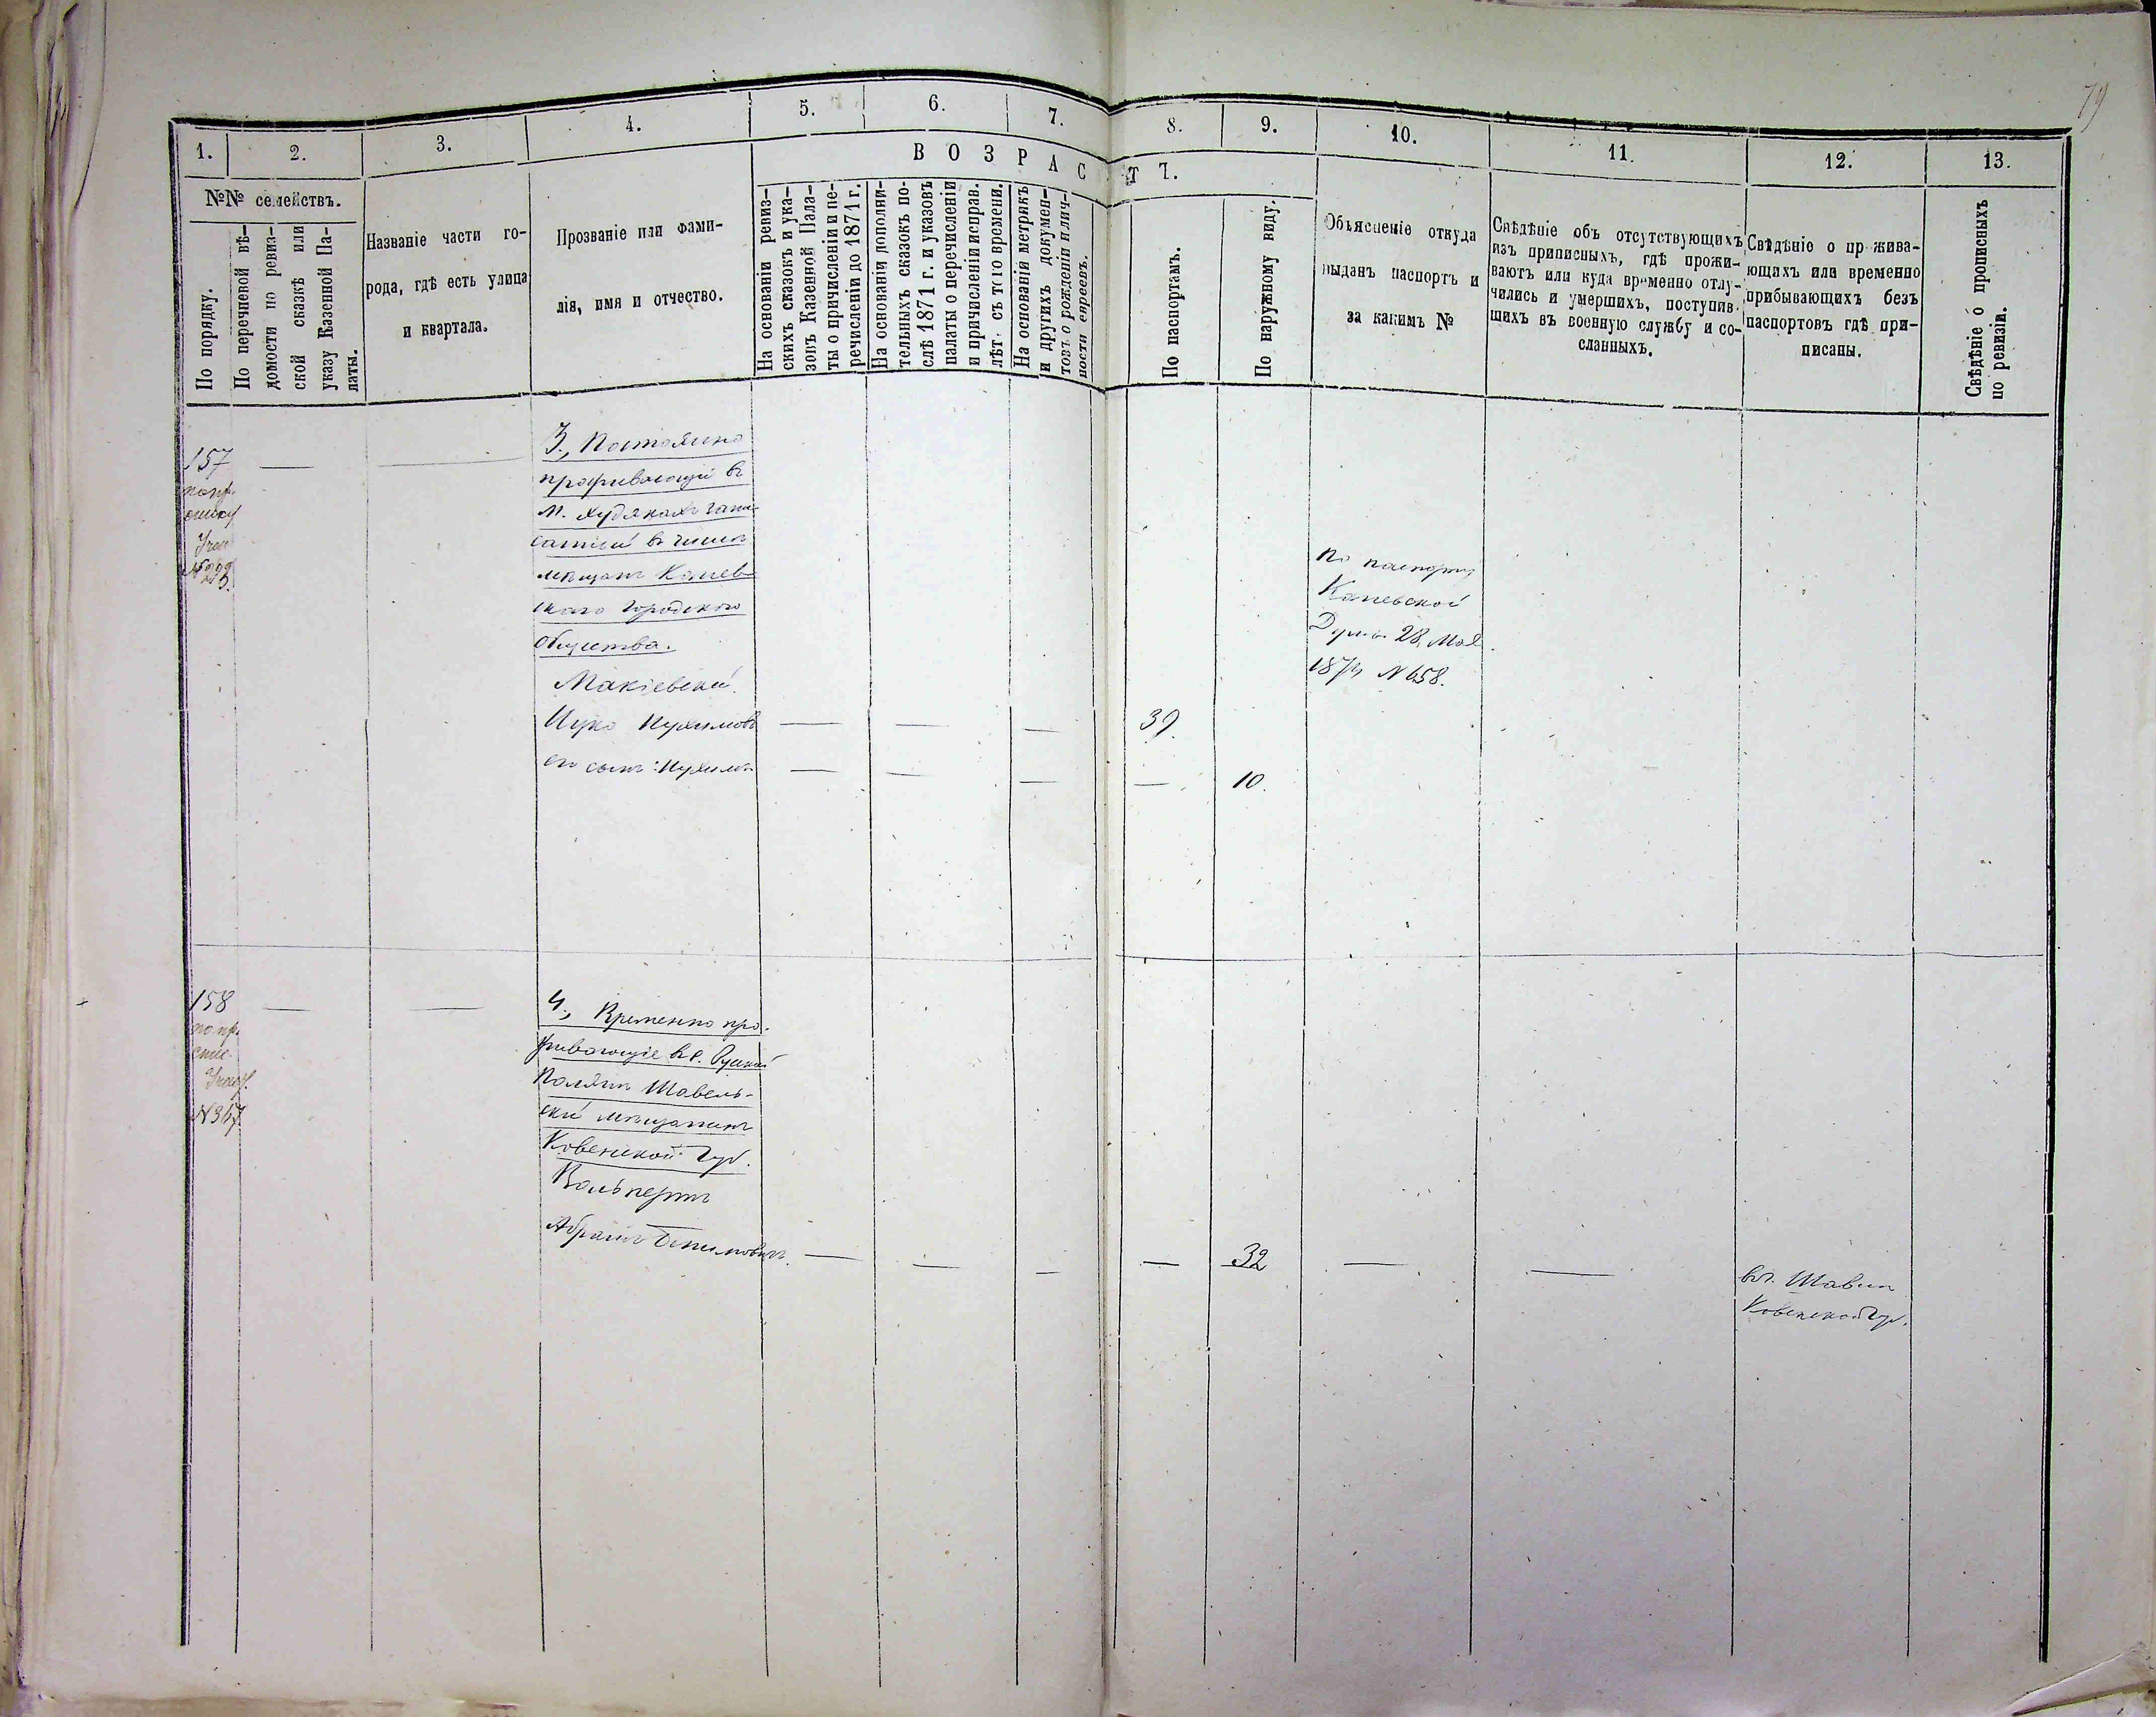 79
1.
2.
3.
4.
5.
6.
7.
8.
9.
10.
11.
12.
13.
№№ семействъ.
По порядку.
По перечневой вѣ-
домости по ревиз-
ской сказкѣ или
указу Казенной Па-
латы.
Названіе части го-
рода, гдѣ есть улица
и квартала.
Прозваніе или фами-
лія, имя и отчество.
ВОЗРАСТЪ.
На основаніи ревиз-
скихъ сказокъ и ука-
зовъ Казенной Пала-
ты о причисленіи и пе-
речисленіи до 1871 г.
На основаніи дополни-
тельныхъ сказокъ по-
слѣ 1871 г. и указовъ
палаты о перечисленіи
и причисленіи исправ.
лѣт. съ того времени.
На основаніи метрикъ
и другихъ докумен-
товъ о рожденіи и лич-
ности евреевъ.
По паспортамъ.
По наружному виду.
Объясненіе откуда
выданъ паспортъ и
за какимъ №
Свѣдѣніе объ отсутствующихъ
изъ приписныхъ, гдѣ прожи-
ваютъ или куда временно отлу-
чились и умершихъ, поступив-
шихъ въ военную службу и со-
сланныхъ.
Свѣдѣніе о прожива-
ющихъ или временно
прибывающихъ безъ
паспортовъ гдѣ при-
писаны.
Свѣдѣніе о прописныхъ
по ревизіи.
157
№ 223.
3., Постоянно
проживающій въ
м. Худякахъ запи-
санный въ числѣ
мѣщанъ Канев-
скаго Городского
Общества.
Макіевскій
Ицко Нухимовъ
39.
его сынъ: Нухимъ
10.
По паспорту
Каневской
Думы 28, Мая
1874 № 658.
158
по пр.
спис.
№ 367
4., Временно про-
живающіе въ с. Руской
Поляне Шавель-
скій мѣщанинъ
Ковенской Губ.
Вольпертъ
Абрамъ
32
въ г. Шавли
Ковенской Губ.